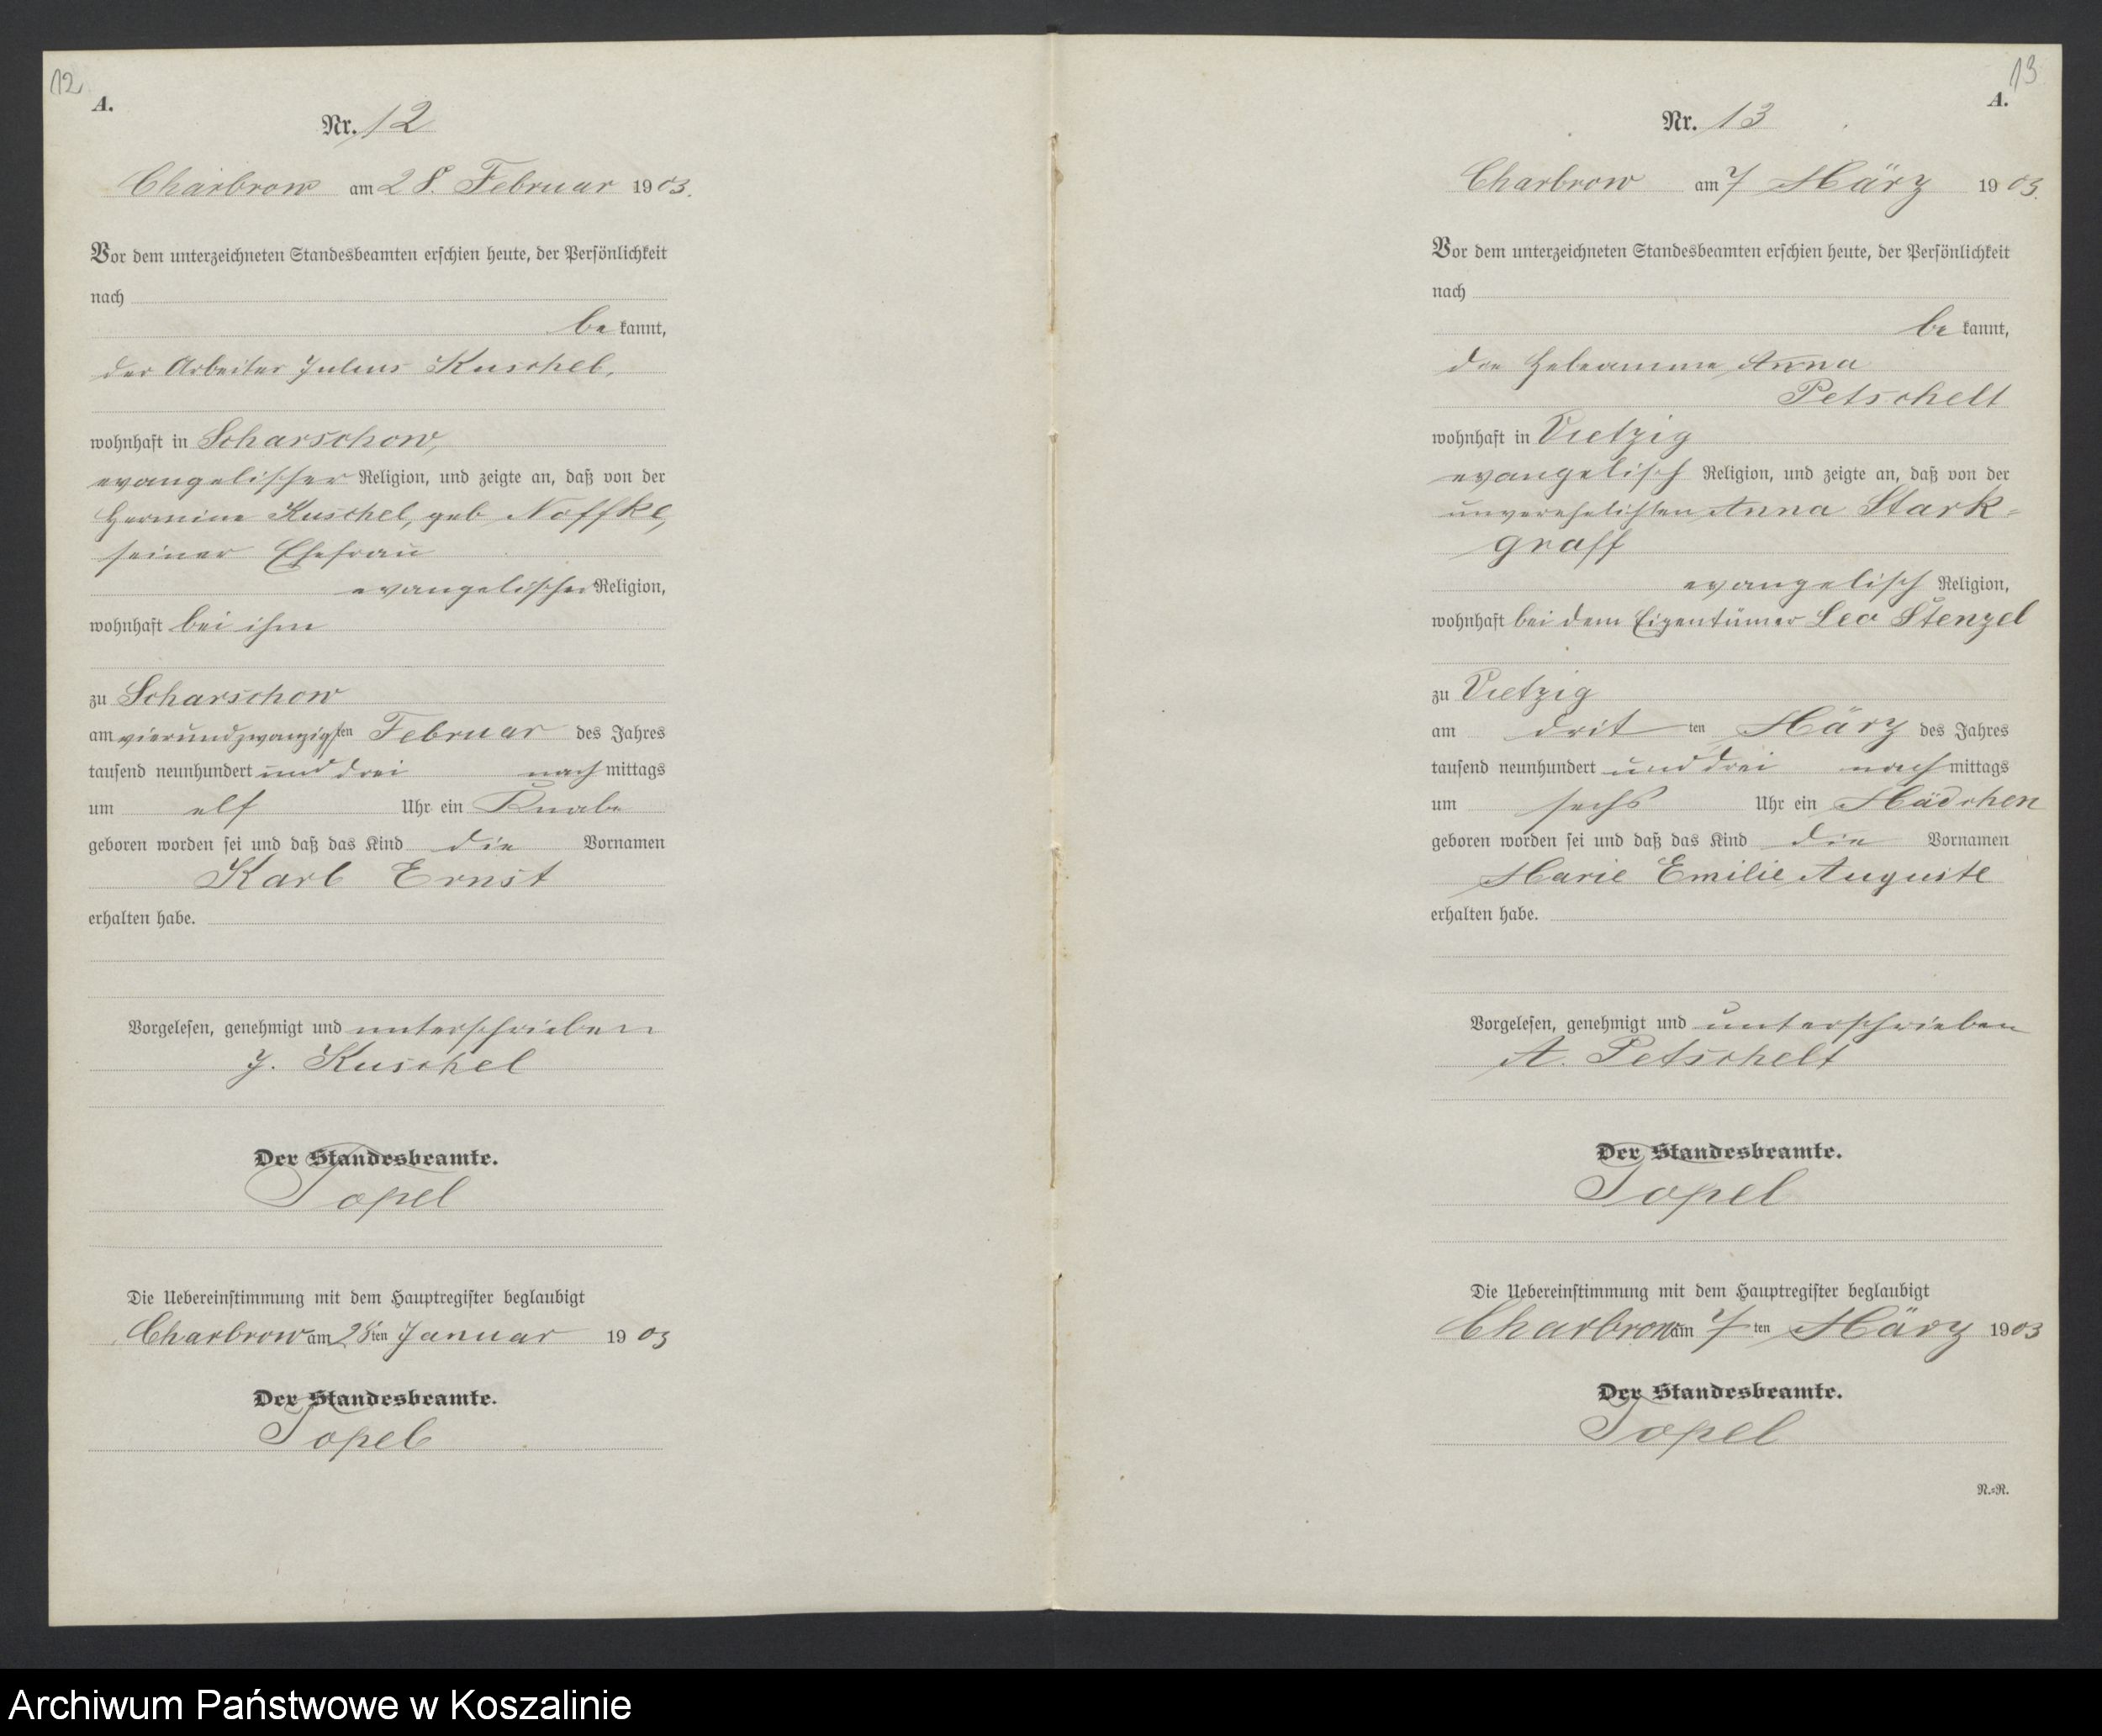 12
A.
Nr. 12
Charbrow am 28. Februar 1903.
Vor dem unterzeichneten Standesbeamten erschien heute, der Persönlichkeit
nach
be kannt,
der Arbeiter Julius Kuschel,
wohnhaft in Scharschow,
evangelischer Religion, und zeigte an, daß von der
Hermine Kuschel, geb Noffke,
seiner Ehefrau
evangelischer Religion,
wohnhaft bei ihm
zu Scharschow
am vierundzwanzigsten Februar des Jahres
tausend neunhundert und drei nach mittags
um elf Uhr ein Knabe
geboren worden sei und daß das Kind die Vornamen
Karl Ernst
erhalten habe.
Vorgelesen, genehmigt und unterschrieben
J. Kuschel
Der Standesbeamte.
Topel
Die Uebereinstimmung mit dem Hauptregister beglaubigt
Charbrow am 28ten Januar 1903
Der Standesbeamte.
Topel
13
A.
Nr. 13
Charbrow am 7 März 1903.
Vor dem unterzeichneten Standesbeamten erschien heute, der Persönlichkeit
nach
be kannt,
die Hebeamme Anna
Petschelt
wohnhaft in Vietzig
evangelisch Religion, und zeigte an, daß von der
unverehelichten Anna Stark-
graff
evangelisch Religion,
wohnhaft bei dem Eigentümer Leo Stenzel
zu Vietzig
am drit ten März des Jahres
tausend neunhundert und drei nach mittags
um sechs Uhr ein Mädchen
geboren worden sei und daß das Kind die Vornamen
Marie Emilie Auguste
erhalten habe.
Vorgelesen, genehmigt und unterschrieben
A. Petschelt
Der Standesbeamte.
Topel
Die Uebereinstimmung mit dem Hauptregister beglaubigt
Charbrow am 7 ten März 1903
Der Standesbeamte.
Topel
N.=R.
Archiwum Państwowe w Koszalinie